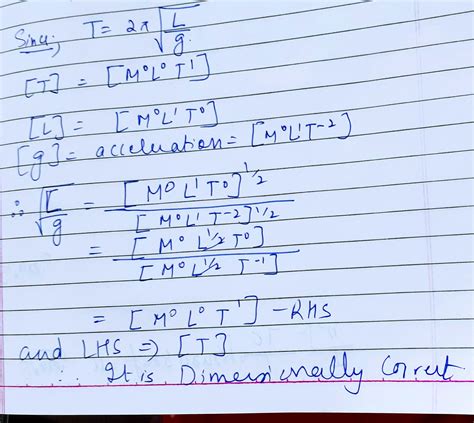 Since, T = 2π√(L/g)
[T] = [M⁰L⁰T¹]
[L] = [M⁰L¹T⁰]
[g] = acceleration = [M⁰L¹T⁻²]
∴ √(L/g) = [M⁰L¹T⁰]^1/2 / [M⁰L¹T⁻²]^1/2
= [M⁰L^1/2T⁰] / [M⁰L^1/2 T⁻¹]
= [M⁰L⁰T¹] - RHS
and LHS ⇒ [T]
∴ It is Dimensionally Correct